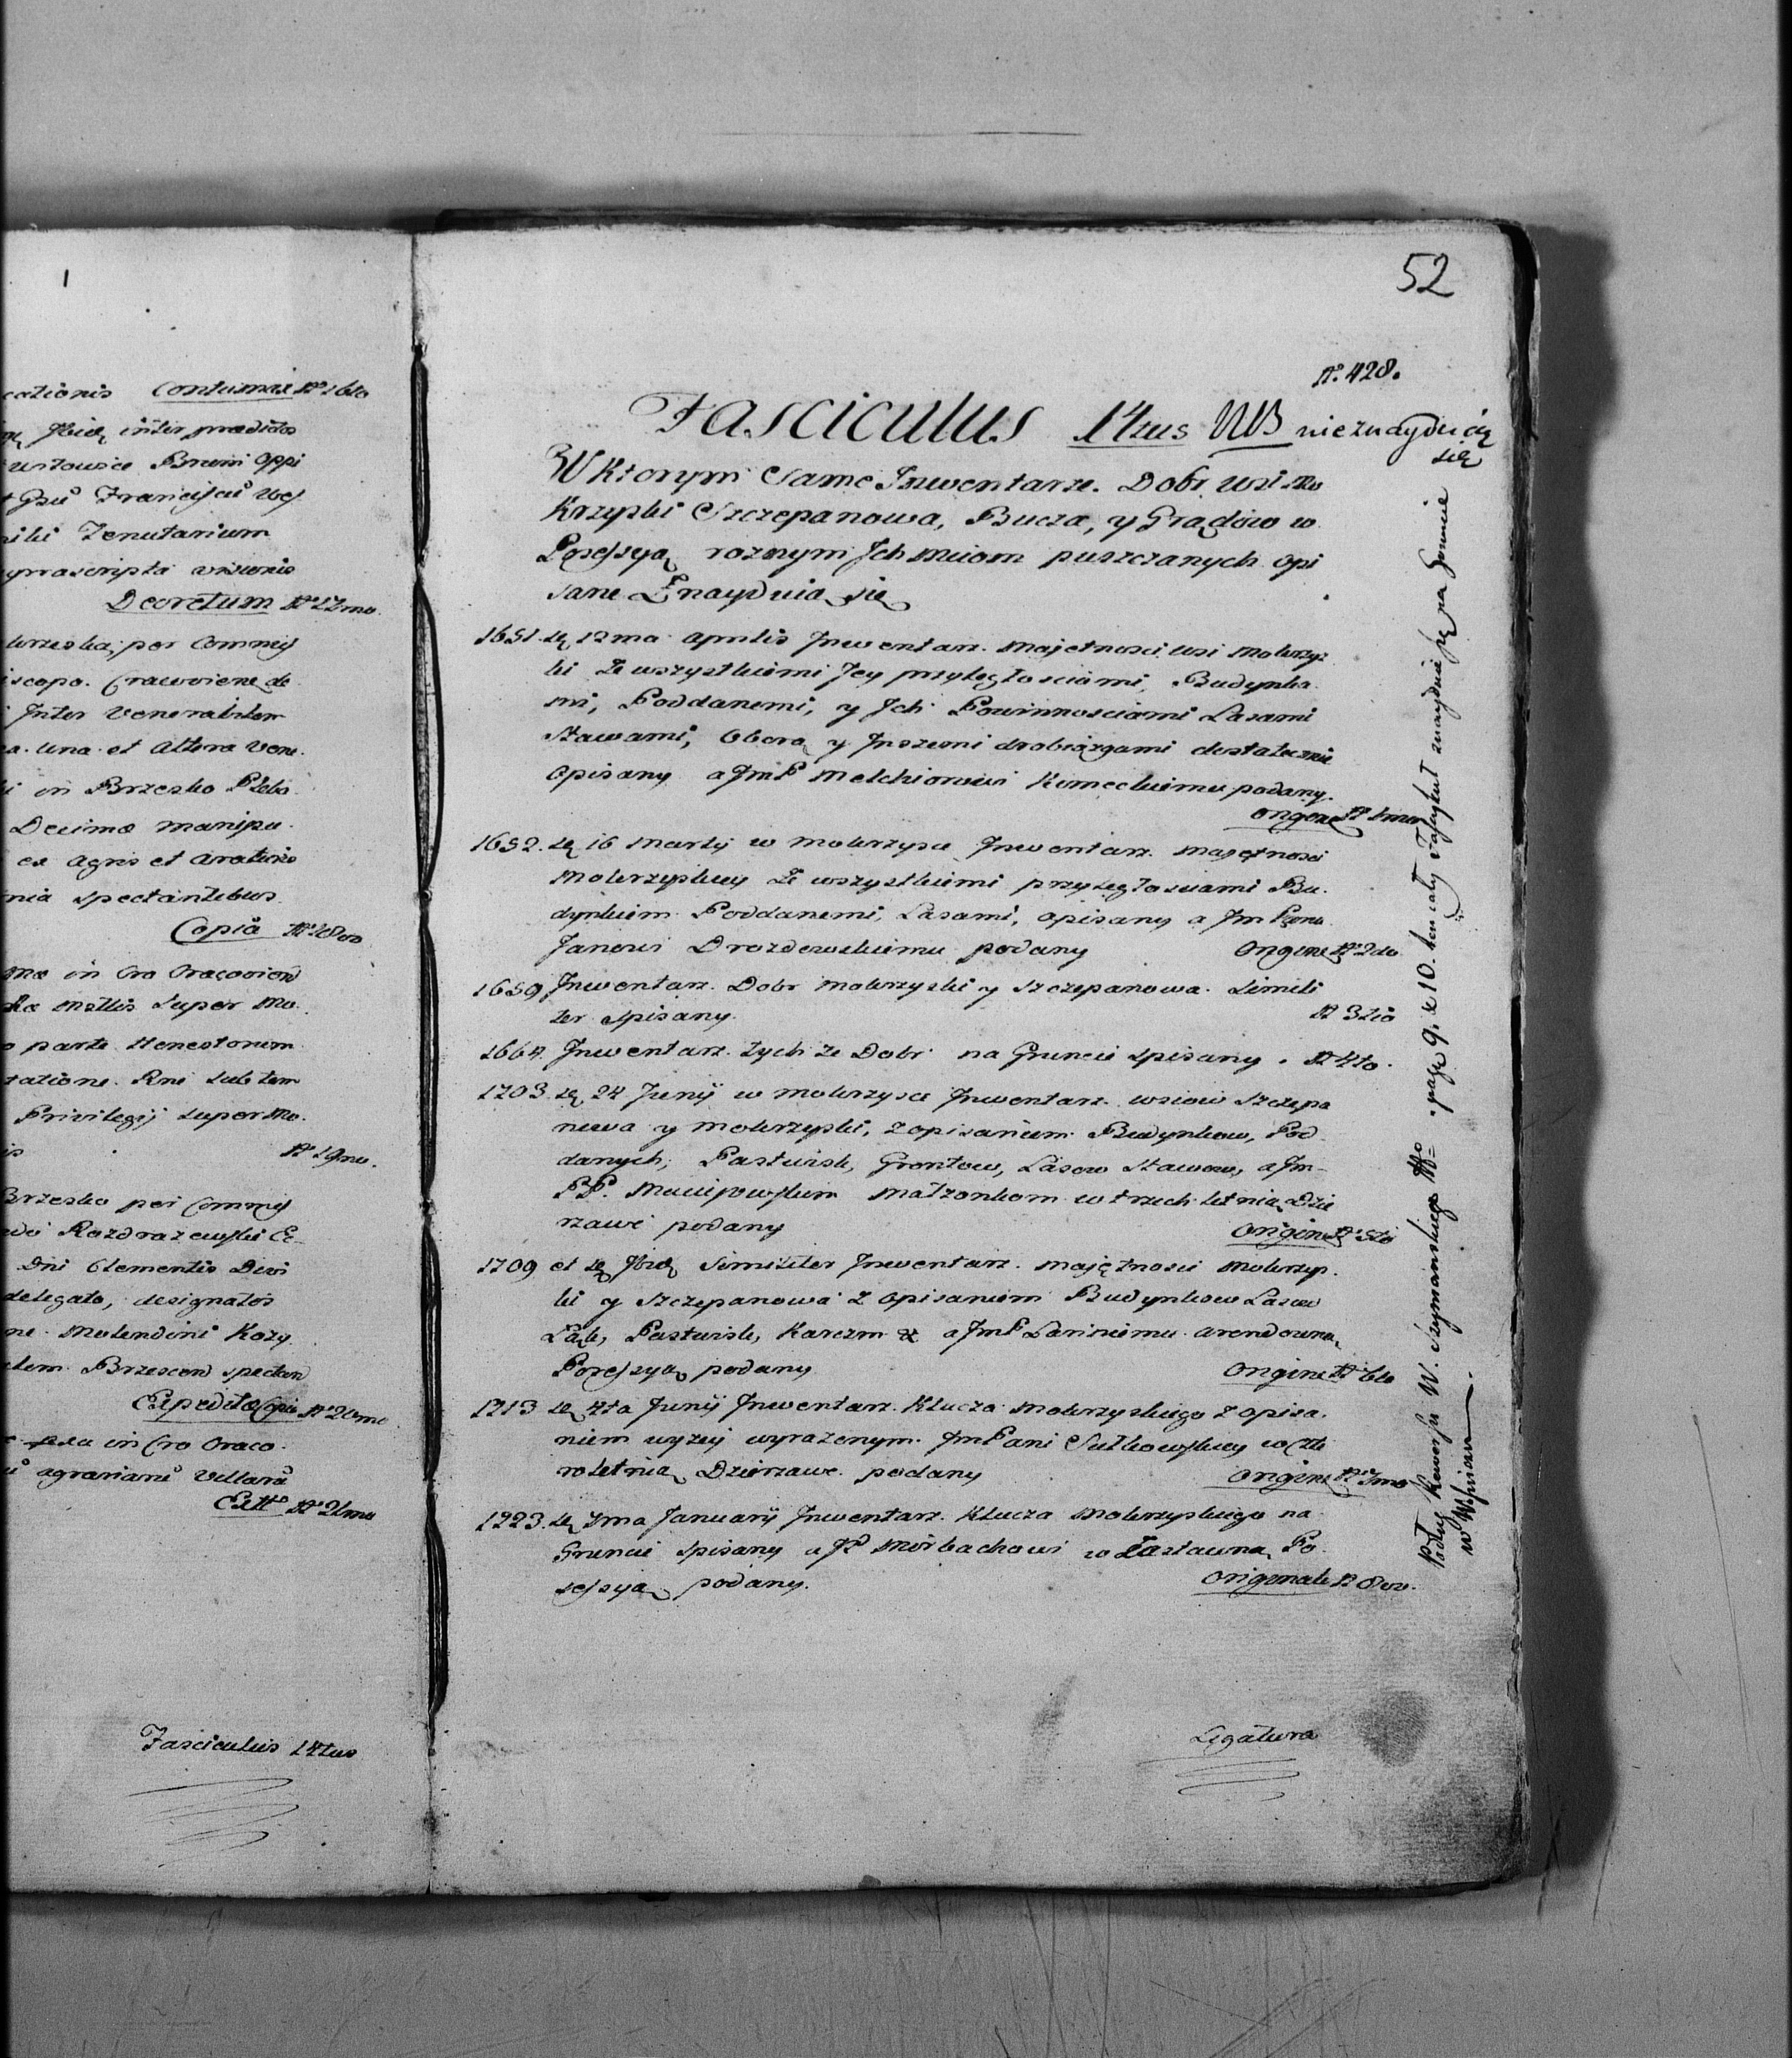 cationis Contumax Nº 16to
Ibid. inter praedictos
Bremi Oppi
Franciscu
Tenutarium
visionis
Decretum Nº 17mo.
per Commis
iscopo. Cracovien. de
Inter Venerabilem
a. una. et Altera Vene.
i in Brzesko Pleba.
Decima manipu.
ex Agris et araturis
spectantibus.
Copia Nº 18vo
in Cro Cracovien
super Mo.
parte Honestorum
Privilegij super Mo.
Nº 19no.
Brzesko per Commis
Rozdrazewski Ec.
Dni Clementis Divi
delegato, designatos
ne. Molendini Kozy.
Brzescen spectan
Expedito Copia Nº 20mo.
in Cro Craco.
agrariani Villarū
Extt. Nº 21mo
Fasciculus 14tus
52
Nº. 428.
Fasciculus 14tus NB nieznayduię
się
W Ktorym Same Inwentarze. Dobr wsi Mo
Krzyski Szczepanowa, Bucza, y Grądów w
Possessyą roznym Ich mciom puszczanych opi
sane Znayduią się
1651. d. 12ma Aprilis Inwentarz. Majetnosci wsi Mokrzys
ki Ze wszystkiemi Jey przyległosciami, Budynka
mi, Poddanemi, y Ich Powinnosciami Lasami
Stawami, Oborą y Inszemi drobiazgami dostatecznie
Opisany a JmP Melchiorowi Komeckiemu podany.
Origine Nº 1mo
1652. d. 16 Martij w Mokrzysce Inwentarz. Majętnosci
Mokrzyskiey Ze wszystkiemi przyległosciami Bu.
dynkiem Poddanemi, Lasami, opisany a Jm Panu
Janowi Drozdowskiemu podany Origine Nº 2do
1659 Inwentarz. Dobr Mokrzyski y Szczepanowa. Simili
ter spisany. Nº 3tio
1664. Inwentarz. tych ze Dobr na Gruncie spisany. Nº 4to.
1703. d. 24 Junij w Mokrzysce Inwentarz. wsiow Szczepa
nowa y Mokrzyski, z opisaniem Budynkow, Pod
danych, Pastwisk, Grontow, Lasow Stawow, a Jm
PP. Maciejowskim Małzonkom w trzech letnią Dzie
rzawe podany Origine Nº 5to
1709 et d. Ibid. Similiter Inwentarz. majętnosci Mokrzys.
ki y Szczepanowa z opisaniem Budynkow Lasow
Łąk, Pastwisk, Karczm & a JmP Laniniemu arendowną
Possessyą podany Origine Nº 6to
1713 d. 4ta Junij Inwentarz. Klucza Mokrzyskiego z opisa.
niem wyzey wyrazonym. JmPani Sułkowskiey w czte
roletnią Dzierzawe podany Origine Nº 7mo
1723. d. 7ma Januarij Inwentarz. Klucza Mokrzyskiego na
Gruncie spisany a JP Morbachowi w Zastawną Po.
sessyą podany. Originale Nº 8vo.
Ligatura
Podług Rewersu W. Szymanskiego Nº page 9. et 10. ten cały Fascykuł znayduie się na Gruncie